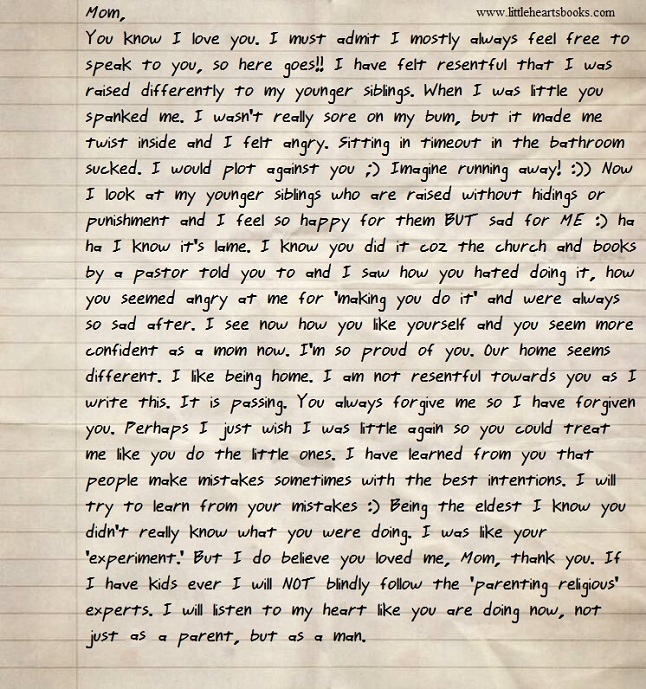 Mom,
www.littleheartsbooks.com
You know I love you. I must admit I mostly always feel free to
speak to you, so here goes!! I have felt resentful that I was
raised differently to my younger siblings. When I was little you
spanked me. I wasn't really sore on my bum, but it made me
twist inside and I felt angry. Sitting in timeout in the bathroom
sucked. I would plot against you ;) Imagine running away! :)) Now
I look at my younger siblings who are raised without hidings or
punishment and I feel so happy for them BUT sad for ME :) ha
ha I know it's lame. I know you did it coz the church and books
by a pastor told you to and I saw how you hated doing it, how
you seemed angry at me for 'making you do it' and were always
so sad after. I see now how you like yourself and you seem more
confident as a mom now. I'm so proud of you. Our home seems
different. I like being home. I am not resentful towards you as I
write this. It is passing. You always forgive me so I have forgiven
you. Perhaps I just wish I was little again so you could treat
me like you do the little ones. I have learned from you that
people make mistakes sometimes with the best intentions. I will
try to learn from your mistakes :) Being the eldest I know you
didn't really know what you were doing. I was like your
'experiment.' But I do believe you loved me, Mom, thank you. If
I have kids ever I will NOT blindly follow the 'parenting religious'
experts. I will listen to my heart like you are doing now, not
just as a parent, but as a man.